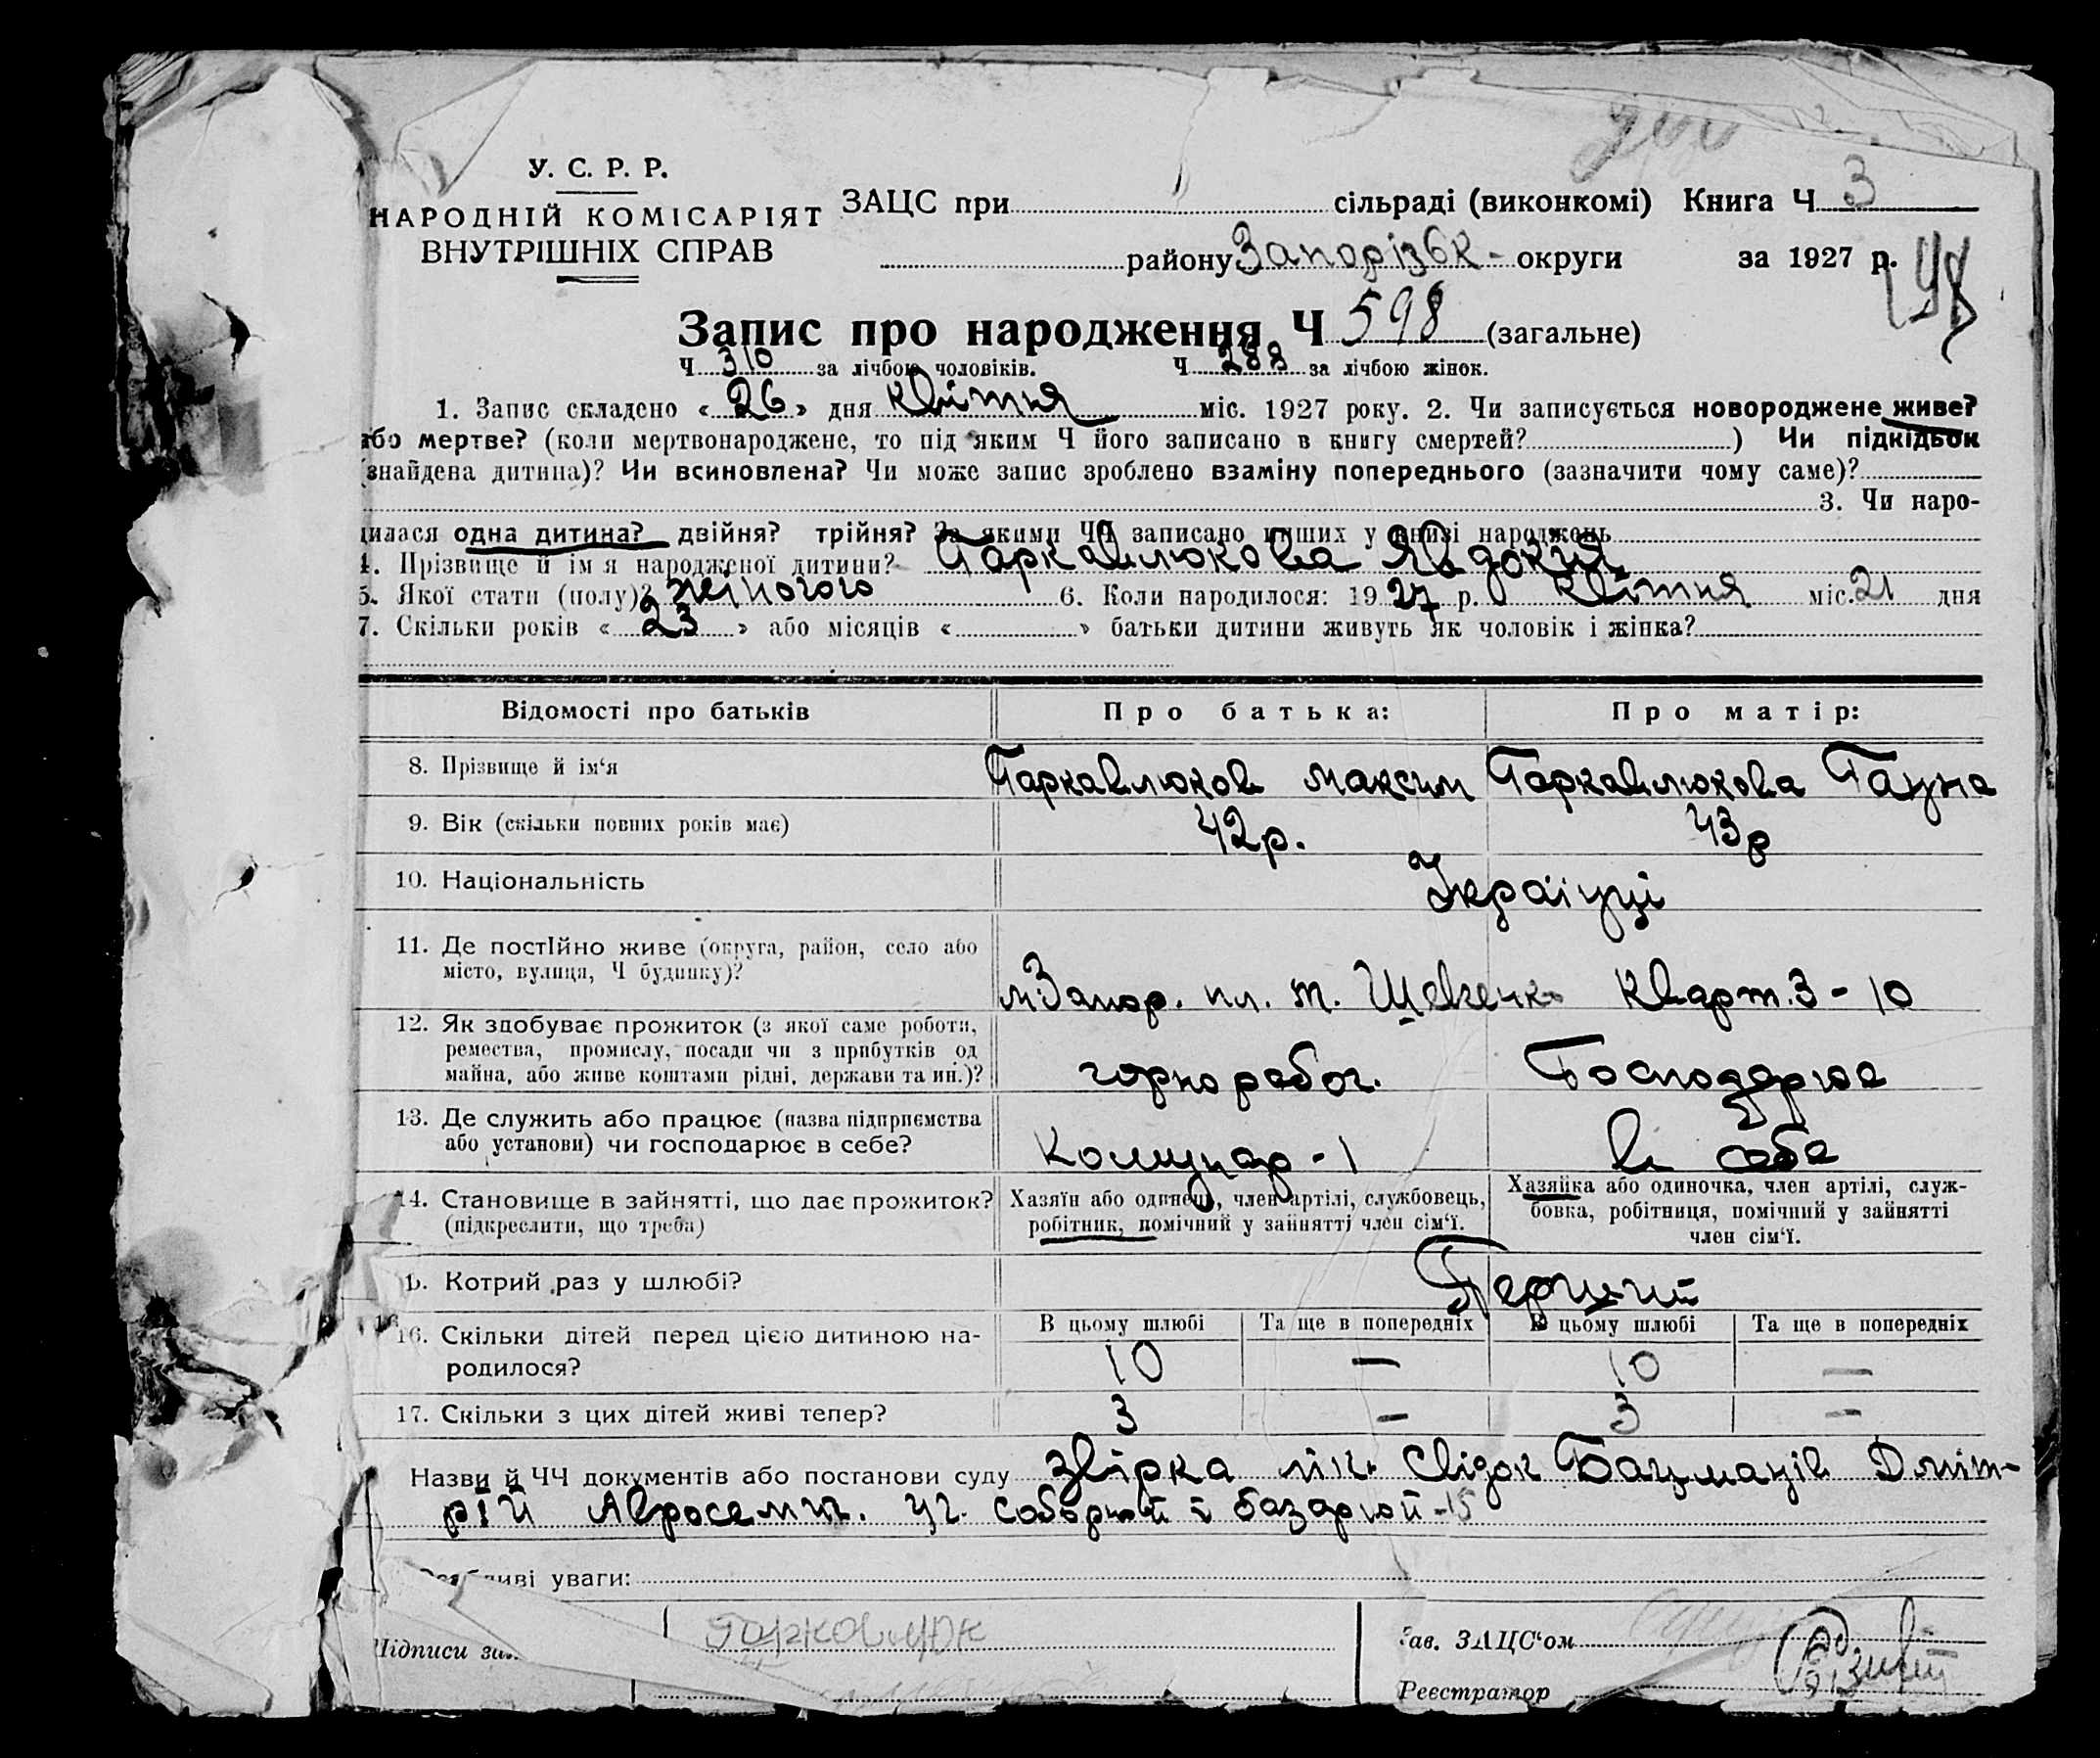 У. С. Р. Р.
НАРОДНІЙ КОМІСАРІЯТ
ВНУТРІШНІХ СПРАВ
ЗАЦС при сільраді (виконкомі) Книга Ч 3
району Запорізьк- округи за 1927 р.
Запис про народження Ч 598 (загальне)
Ч 310 за лічбою чоловіків. Ч 288 за лічбою жінок.
1. Запис складено « 26 » дня квітня міс. 1927 року. 2. Чи записується новороджене живе?
або мертве? (коли мертвонароджене, то під яким Ч його записано в книгу смертей? ) Чи підкідьок
(знайдена дитина)? Чи всиновлена? Чи може запис зроблено взаміну попереднього (зазначити чому саме)?
3. Чи наро-
дилася одна дитина? двійня? трійня? За якими ЧЧ записано инших у книзі народжень
4. Прізвище й ім'я народженої дитини? Паркавлюкова Явдокия
5. Якої стати (полу)? жіночого 6. Коли народилося: 1927 р. квітня міс. 21 дня
7. Скільки років « 23 » або місяців « » батьки дитини живуть як чоловік і жінка?
Відомості про батьків Про батька: Про матір:
8. Прізвище й ім'я Паркавлюков Максим Паркавлюкова Ганна
9. Вік (скільки повних років має) 42р. 43р
10. Національність Українці
11. Де постІйно живе (округа, район, село або
місто, вулиця, Ч будинку)? м.Запор. пл. Т. Шевченк Кварт. 3 - 10
12. Як здобуває прожиток (з якої саме роботи,
ремества, промислу, посади чи з прибутків од
майна, або живе коштами рідні, держави та ин.)? горнорабоч. Господарює
13. Де служить або працює (назва підприємства
або установи) чи господарює в себе? Комунар - 1 в себе
14. Становище в зайнятті, що дає прожиток?
(підкреслити, що треба)
Хазяїн або одинець, член артілі, службовець,
робітник, помічний у зайнятті член сім'ї.
Хазяйка або одиночка, член артілі, служ-
бовка, робітниця, помічний у зайнятті
член сім'ї.
Котрий раз у шлюбі? Перший
16. Скільки дітей перед цією дитиною на-
родилося?
В цьому шлюбі Та ще в попередніх В цьому шлюбі Та ще в попередніх
10 — 10 —
17. Скільки з цих дітей живі тепер? 3 — 3 —
Назви й ЧЧ документів або постанови суду звірка лік. Свідок Бацманів Дміт-
рій Авросемич. уг. Соборной і базарной -15
Особливі уваги:
Підписи за Паркавлюк Зав. ЗАЦС'ом
Реєстратор